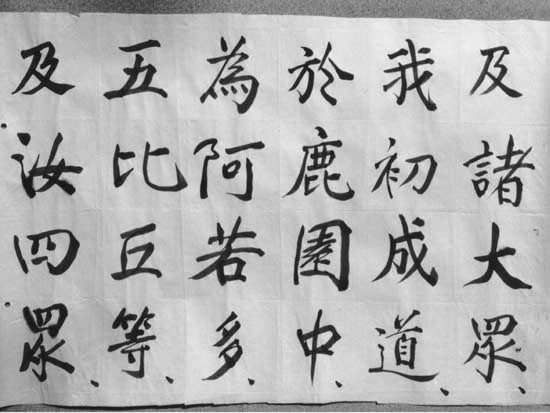 及諸大眾、
我初成道、
於鹿園中、
為阿若多、
五比丘等、
及汝四眾、